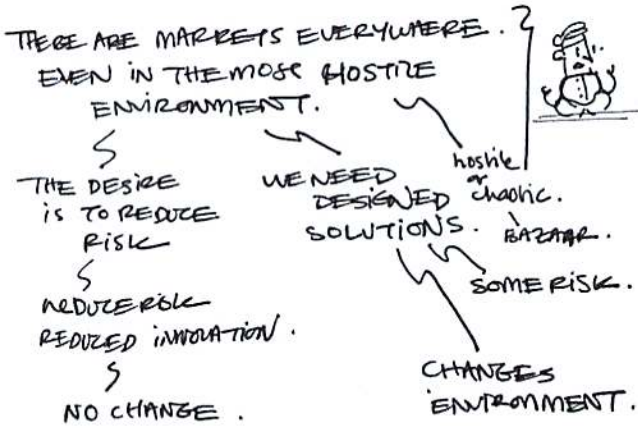 THERE ARE MARKETS EVERYWHERE.
EVEN IN THE MOST HOSTILE
ENVIRONMENT.
THE DESIRE
is TO REDUCE
RISK
REDUCE RISK
REDUCED INNOVATION.
NO CHANGE.
WE NEED
DESIGNED
SOLUTIONS.
hostile
or
chaotic.
BAZAAR.
SOME RISK.
CHANGES
ENVIRONMENT.